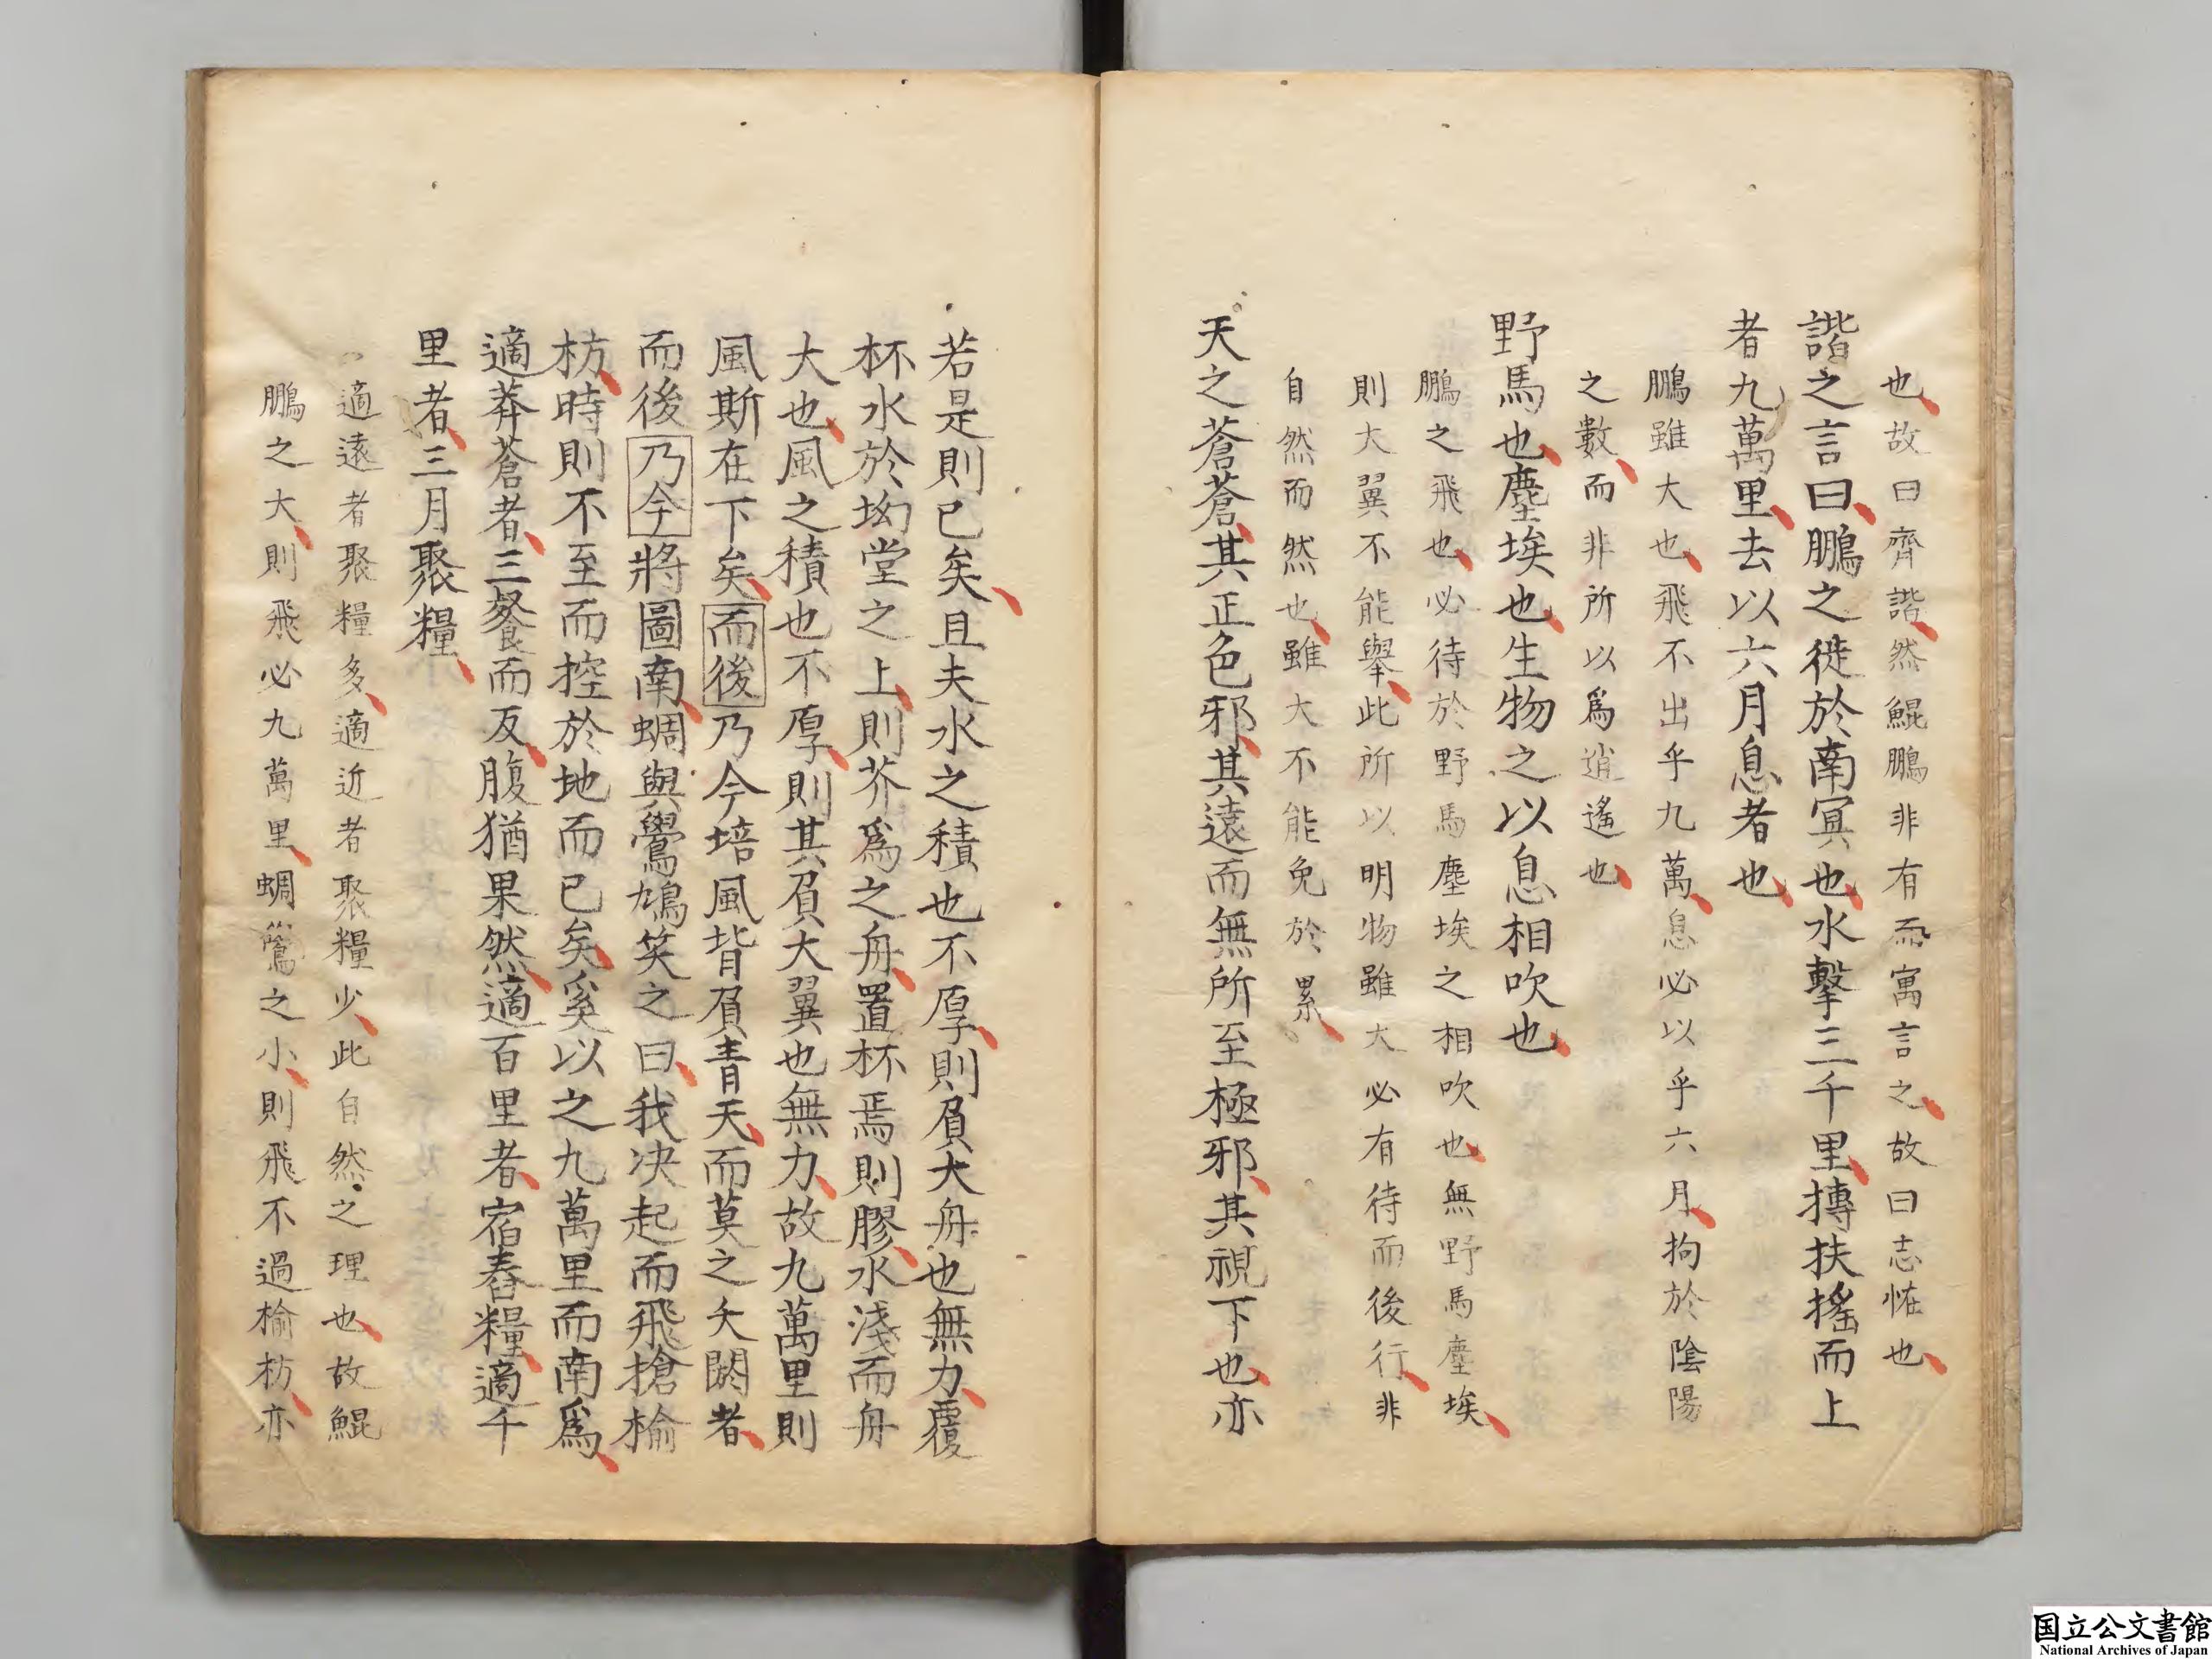 也故曰齊諧然鯤鵬非有而寓言之故曰志怪也
諧之言曰鵬之徙於南冥也水擊三千里摶扶搖而上
者九萬里去以六月息者也
鵬雖大也飛不出乎九萬息必以乎六月拘於陰陽
之數而非所以爲逍遙也
野馬也塵埃也生物之以息相吹也
鵬之飛也必待於野馬塵埃之相吹也無野馬塵埃
則大翼不能舉此所以明物雖大必有待而後行非
自然而然也雖大不能免於累
天之蒼蒼其正色邪其遠而無所至極邪其視下也亦
若是則已矣且夫水之積也不厚則負大舟也無力覆
杯水於坳堂之上則芥爲之舟置杯焉則膠水淺而舟
大也風之積也不厚則其負大翼也無力故九萬里則
風斯在下矣而後乃今培風背負青天而莫之夭閼者
而後乃今將圖南蜩與鷽鳩笑之曰我决起而飛搶榆
枋時則不至而控於地而已矣奚以之九萬里而南爲
適莽蒼者三飡而反腹猶果然適百里者宿舂糧適千
里者三月聚糧
適遠者聚糧多適近者聚糧少此自然之理也故鯤
鵬之大則飛必九萬里蜩鷽之小則飛不過榆枋亦
国立公文書館
National Archives of Japan